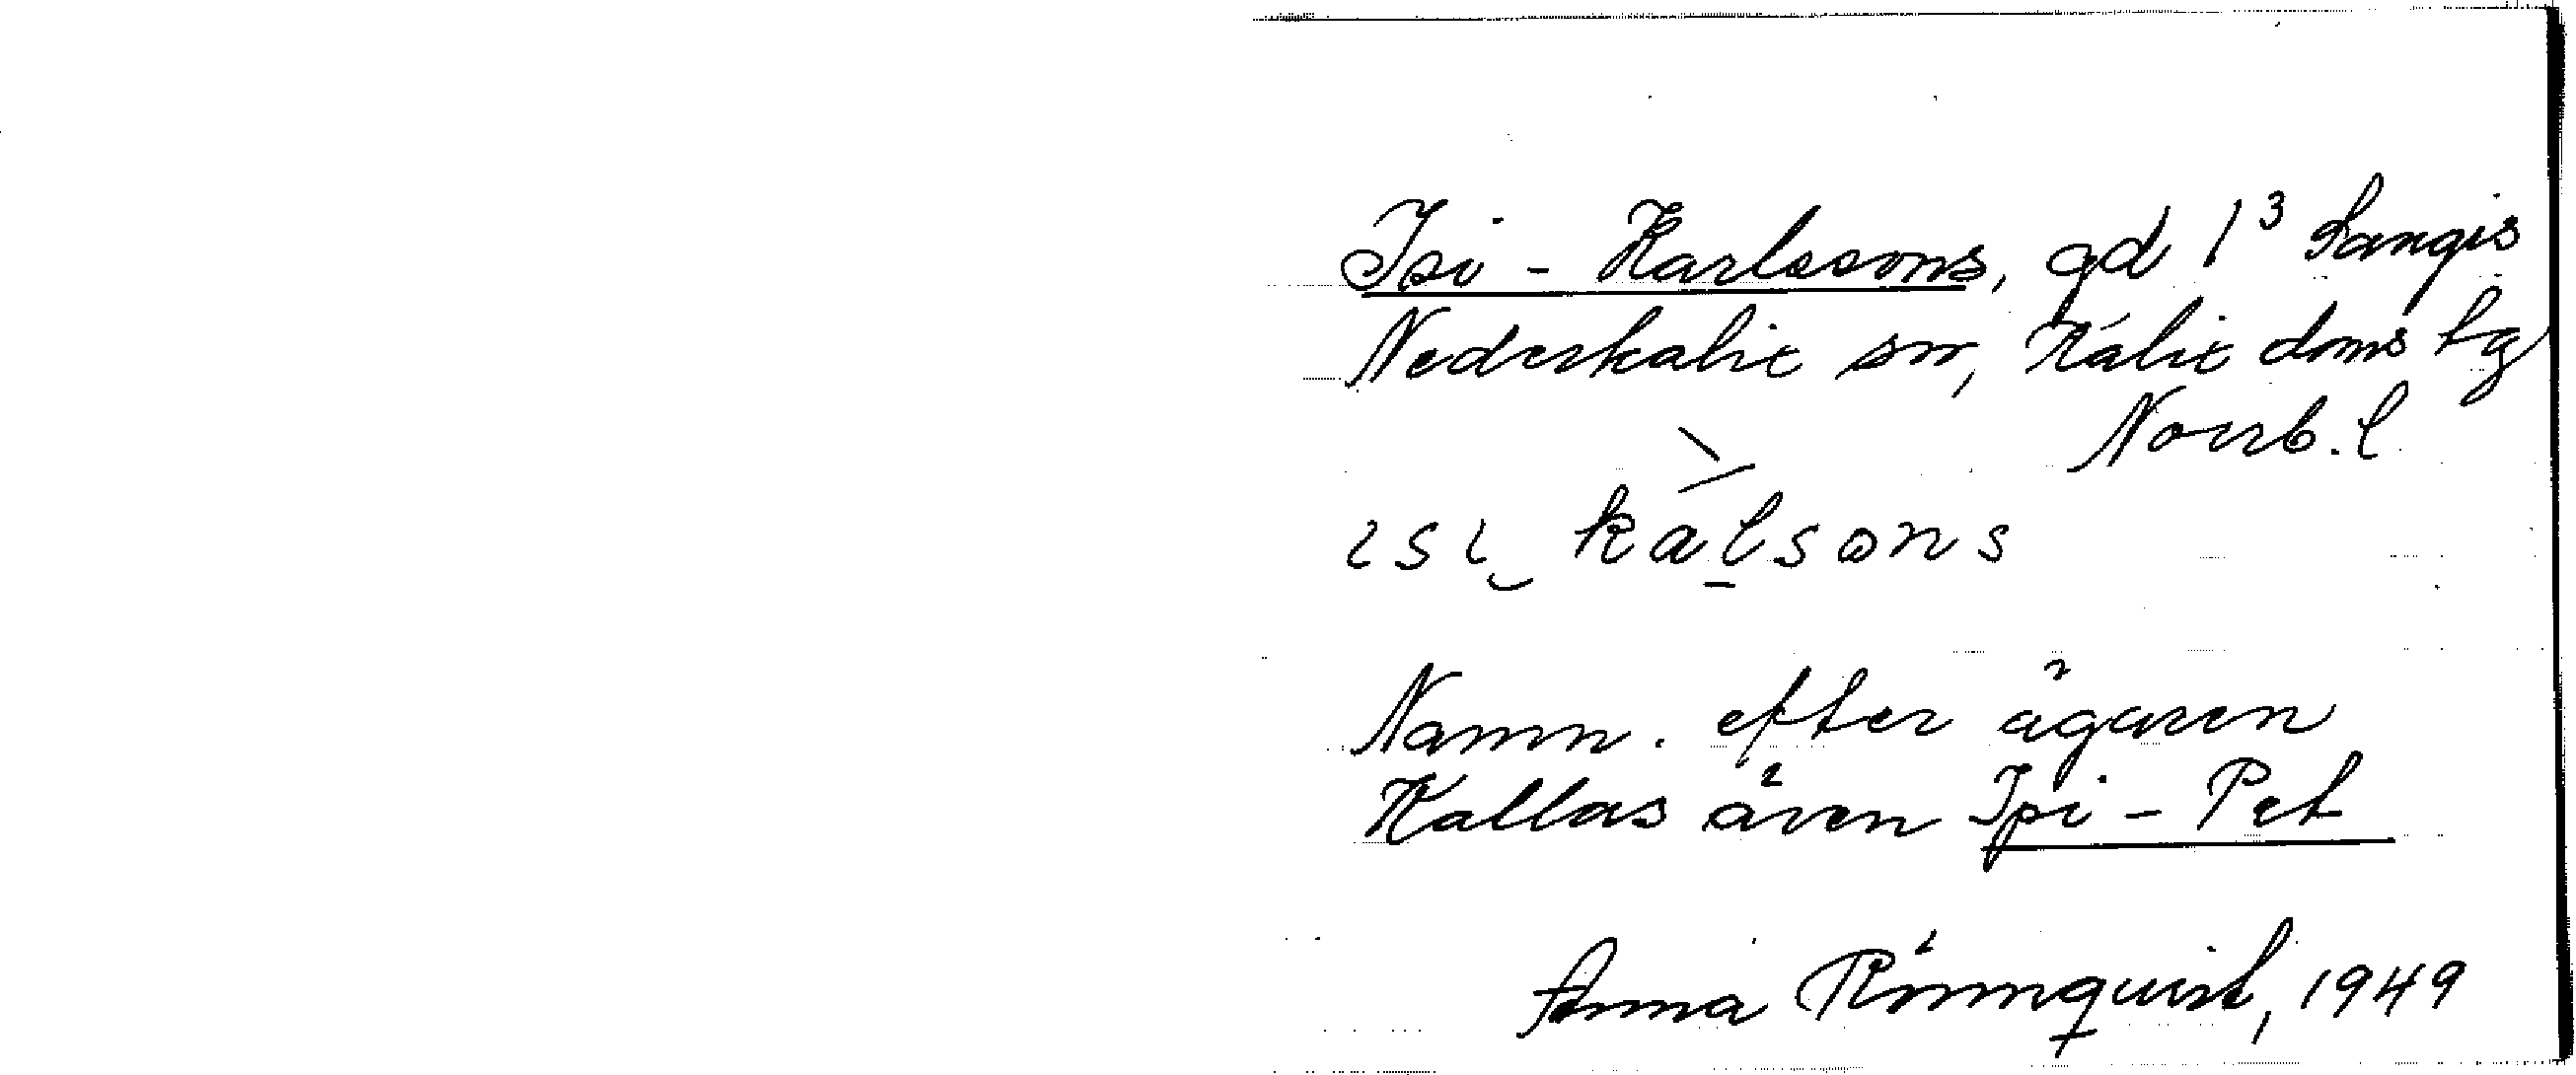 Isi - Karlssons, gd 1³ Sangis
Nederkalix sn, Kalix doms tg
Norrb. l
ɩsɩ̮ kàḷsons
Namn. efter ägaren
Kallas även Ipi - Pet
Anna Rönnquist, 1949